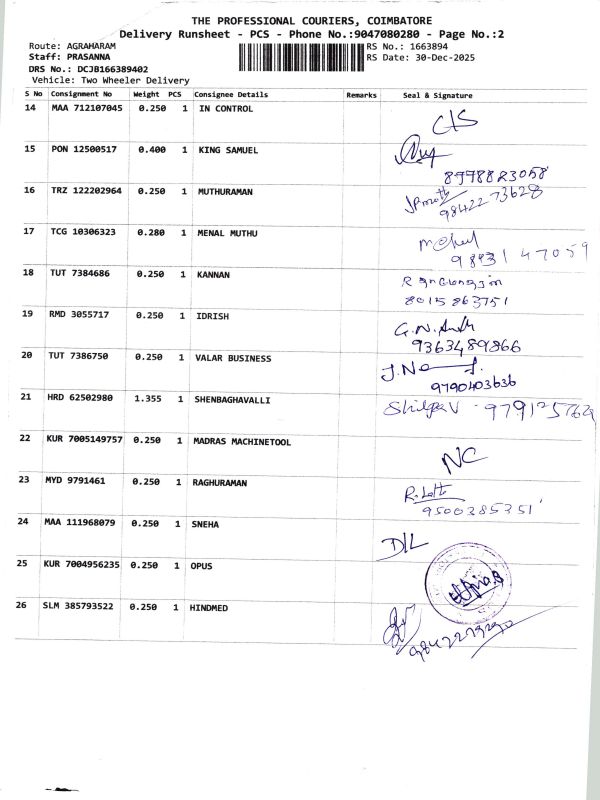 THE PROFESSIONAL COURIERS, COIMBATORE
Delivery Runsheet - PCS - Phone No.:9047080280 - Page No.:2
Route: AGRAHARAM RS No.: 1663894
Staff: PRASANNA RS Date: 30-Dec-2025
DRS No.: DCJB166389402
Vehicle: Two Wheeler Delivery
S No Consignment No Weight PCS Consignee Details Remarks Seal & Signature
14 MAA 712107045 0.250 1 IN CONTROL
15 PON 12500517 0.400 1 KING SAMUEL
16 TRZ 122202964 0.250 1 MUTHURAMAN
9842273628
17 TCG 10306323 0.280 1 MENAL MUTHU
18 TUT 7384686 0.250 1 KANNAN
8015863751
19 RMD 3055717 0.250 1 IDRISH
9363489866
20 TUT 7386750 0.250 1 VALAR BUSINESS
9790403636
21 HRD 62502980 1.355 1 SHENBAGHAVALLI
22 KUR 7005149757 0.250 1 MADRAS MACHINETOOL
NC
23 MYD 9791461 0.250 1 RAGHURAMAN
9500385351
24 MAA 111968079 0.250 1 SNEHA
D/L
25 KUR 7004956235 0.250 1 OPUS
26 SLM 385793522 0.250 1 HINDMED